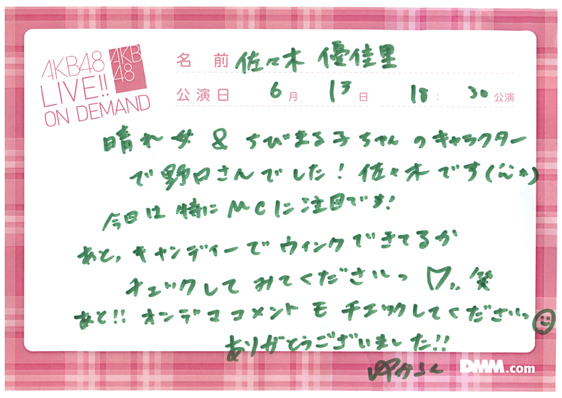 AKB48
LIVE!!
ON DEMAND
AKB
48
名 前 佐々木 優佳里
公演日 6月 13日 18:30公演
晴れ女 & ちびまる子ちゃんのキャラクター
で野口さんでした! 佐々木です(^^)
今日は特にMCに注目です!
あと、キャンディーでウィンクできてるか
チェックしてみてくださいっ ♡,, 笑
あと!! オンデマコメントモチェックしてくださいっ☺
ありがとうございました!!
DMM.com